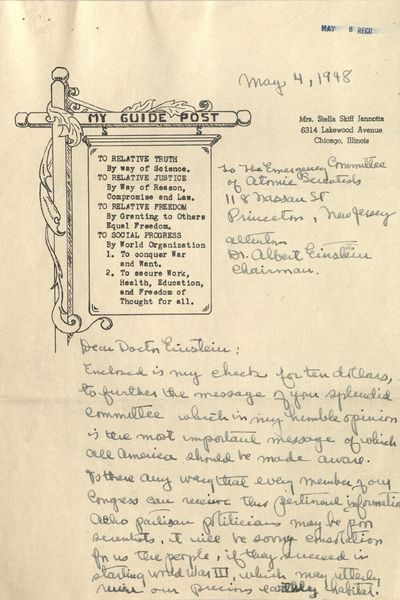 MAY 6 RECD
May 4, 1948
MY GUIDE POST
Mrs. Stella Skiff Jannotta
6314 Lakewood Avenue
Chicago, Illinois
TO RELATIVE TRUTH
By way of Science.
TO RELATIVE JUSTICE
By Way of Reason,
Compromise and Law.
TO RELATIVE FREEDOM
By Granting to Others
Equal Freedom.
TO SOCIAL PROGRESS
By World Organization
1. To conquer War
and Want.
2. To secure Work,
Health, Education,
and Freedom of
Thought for all.
To The Emergency Committee
of Atomic Scientists
118 Nassau St
Princeton, New Jersey
attention
Dr. Albert Einstein
Chairman.
Dear Doctor Einstein:
Enclosed is my check for ten dollars,
to further the message of your splendid
Committee which in my humble opinion
is the most important message of which
all America should be made aware.
Is there any way that every member of our
Congress can receive this pertinent information
Altho partisan politicians may be poor
scientists, it will be sorry consolation
for us the people, if they succeed in
starting World War III, which may utterly
ruin our precious earthly habitat.